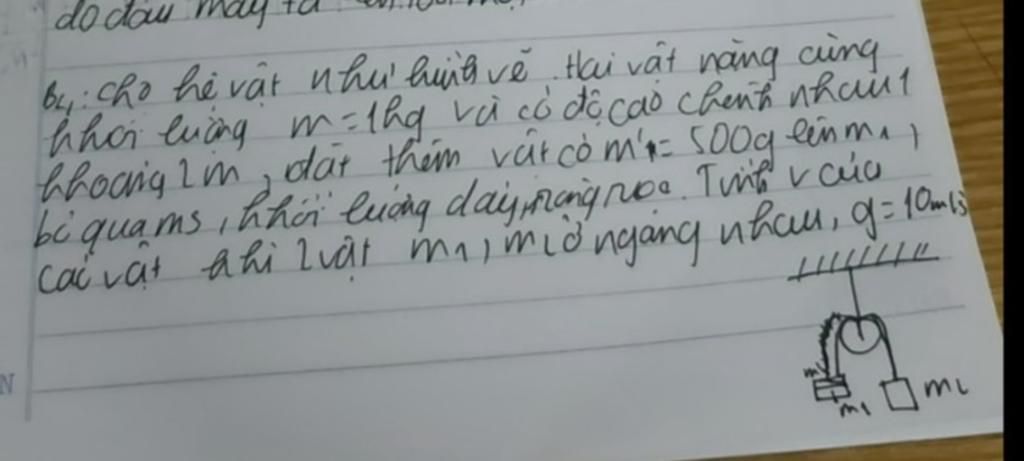 do dây máy ta
B4: cho hệ vật như hình vẽ. Hai vật nặng cùng
khối lượng m = 1kg và có độ cao chênh nhau 1
khoảng 2m, đặt thêm vật có m'1 = 500g lên m1,
bỏ qua ms, khối lượng dây, ròng rọc. Tính v của
các vật khi 2 vật m1, m2 ở ngang nhau, g = 10m/s
m'
m1
m2
N